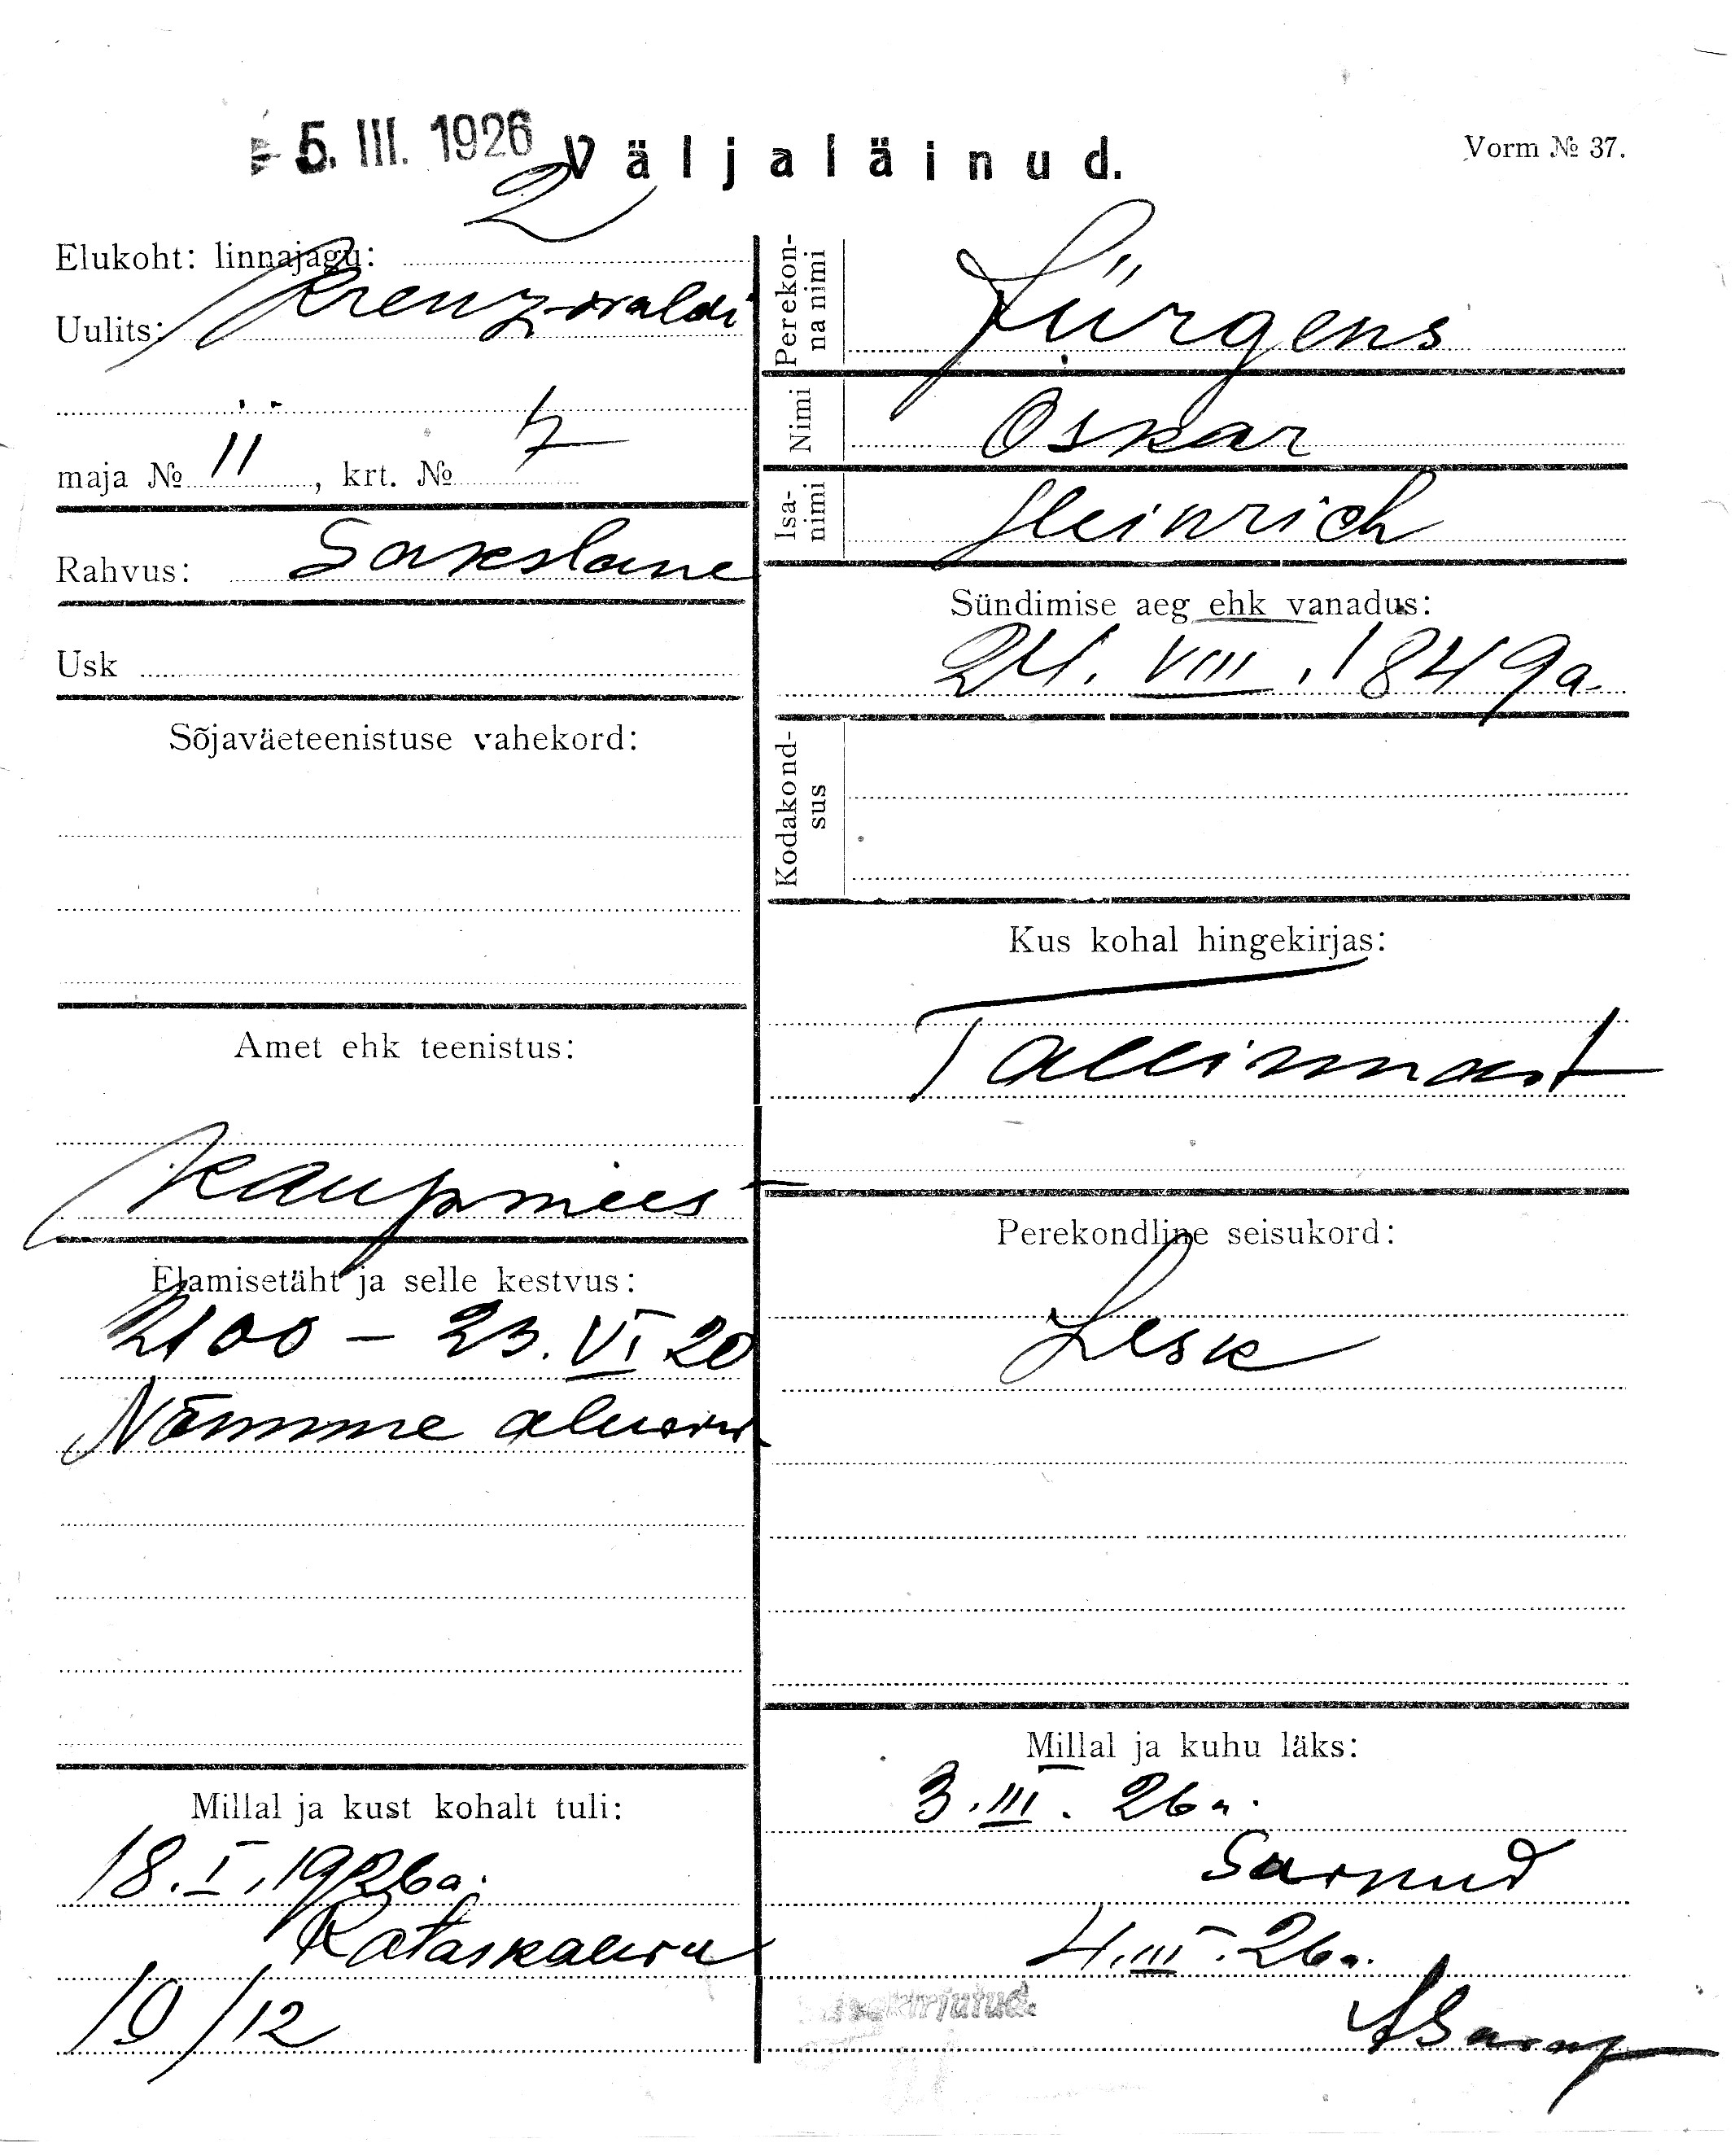 5. III. 1926
Väljaläinud.
Vorm № 37.
Elukoht: linnajagu: 2
Uulits: Kreuzwaldi
maja № 11, krt. № 7
Rahvus: Sakslane
Usk
Sõjaväeteenistuse vahekord:
Amet ehk teenistus:
Kaupmees
Elamisetäht ja selle kestvus:
2100 – 23. VI 20
Nõmme
Millal ja kust kohalt tuli:
18. I. 1926 a.
Rataskaevu
/12
Perekonna nimi
Jürgens
Nimi
Oskar
Isanimi
Heinrich
Sündimise aeg ehk vanadus:
24. VIII. 1849 a.
Kodakondsus
Kus kohal hingekirjas:
Tallinnast
Perekondline seisukord:
Lesk
Millal ja kuhu läks:
3. III. 26 a.
Surnud
4. III. 26 a.